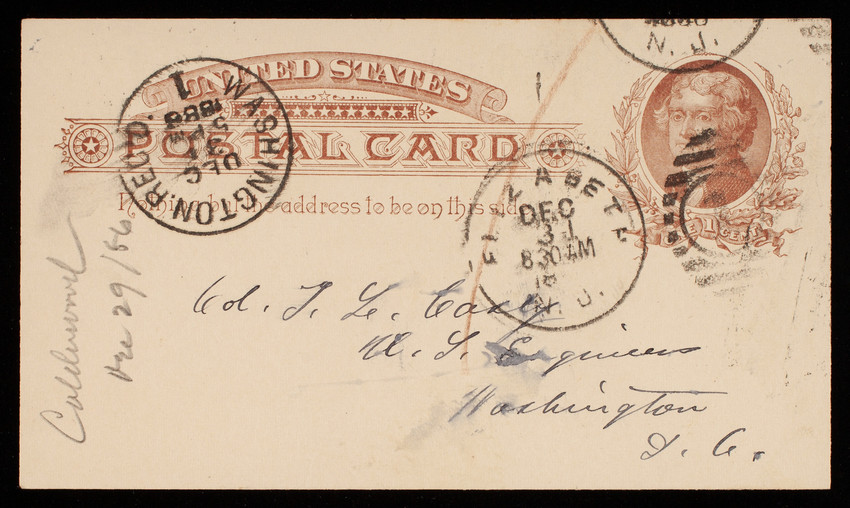 N. J.
UNITED STATES
POSTAL CARD
Nothing but the address to be on this side
ONE 1 CENT
WASHINGTON. REC'D.
DEC
31
5 PM
1886
1
ELIZABETH
DEC
31
8 30 AM
18
N. J.
Col. T. L. Casey
U. S. Engineers
Washington
D. C.
Dec 29/86